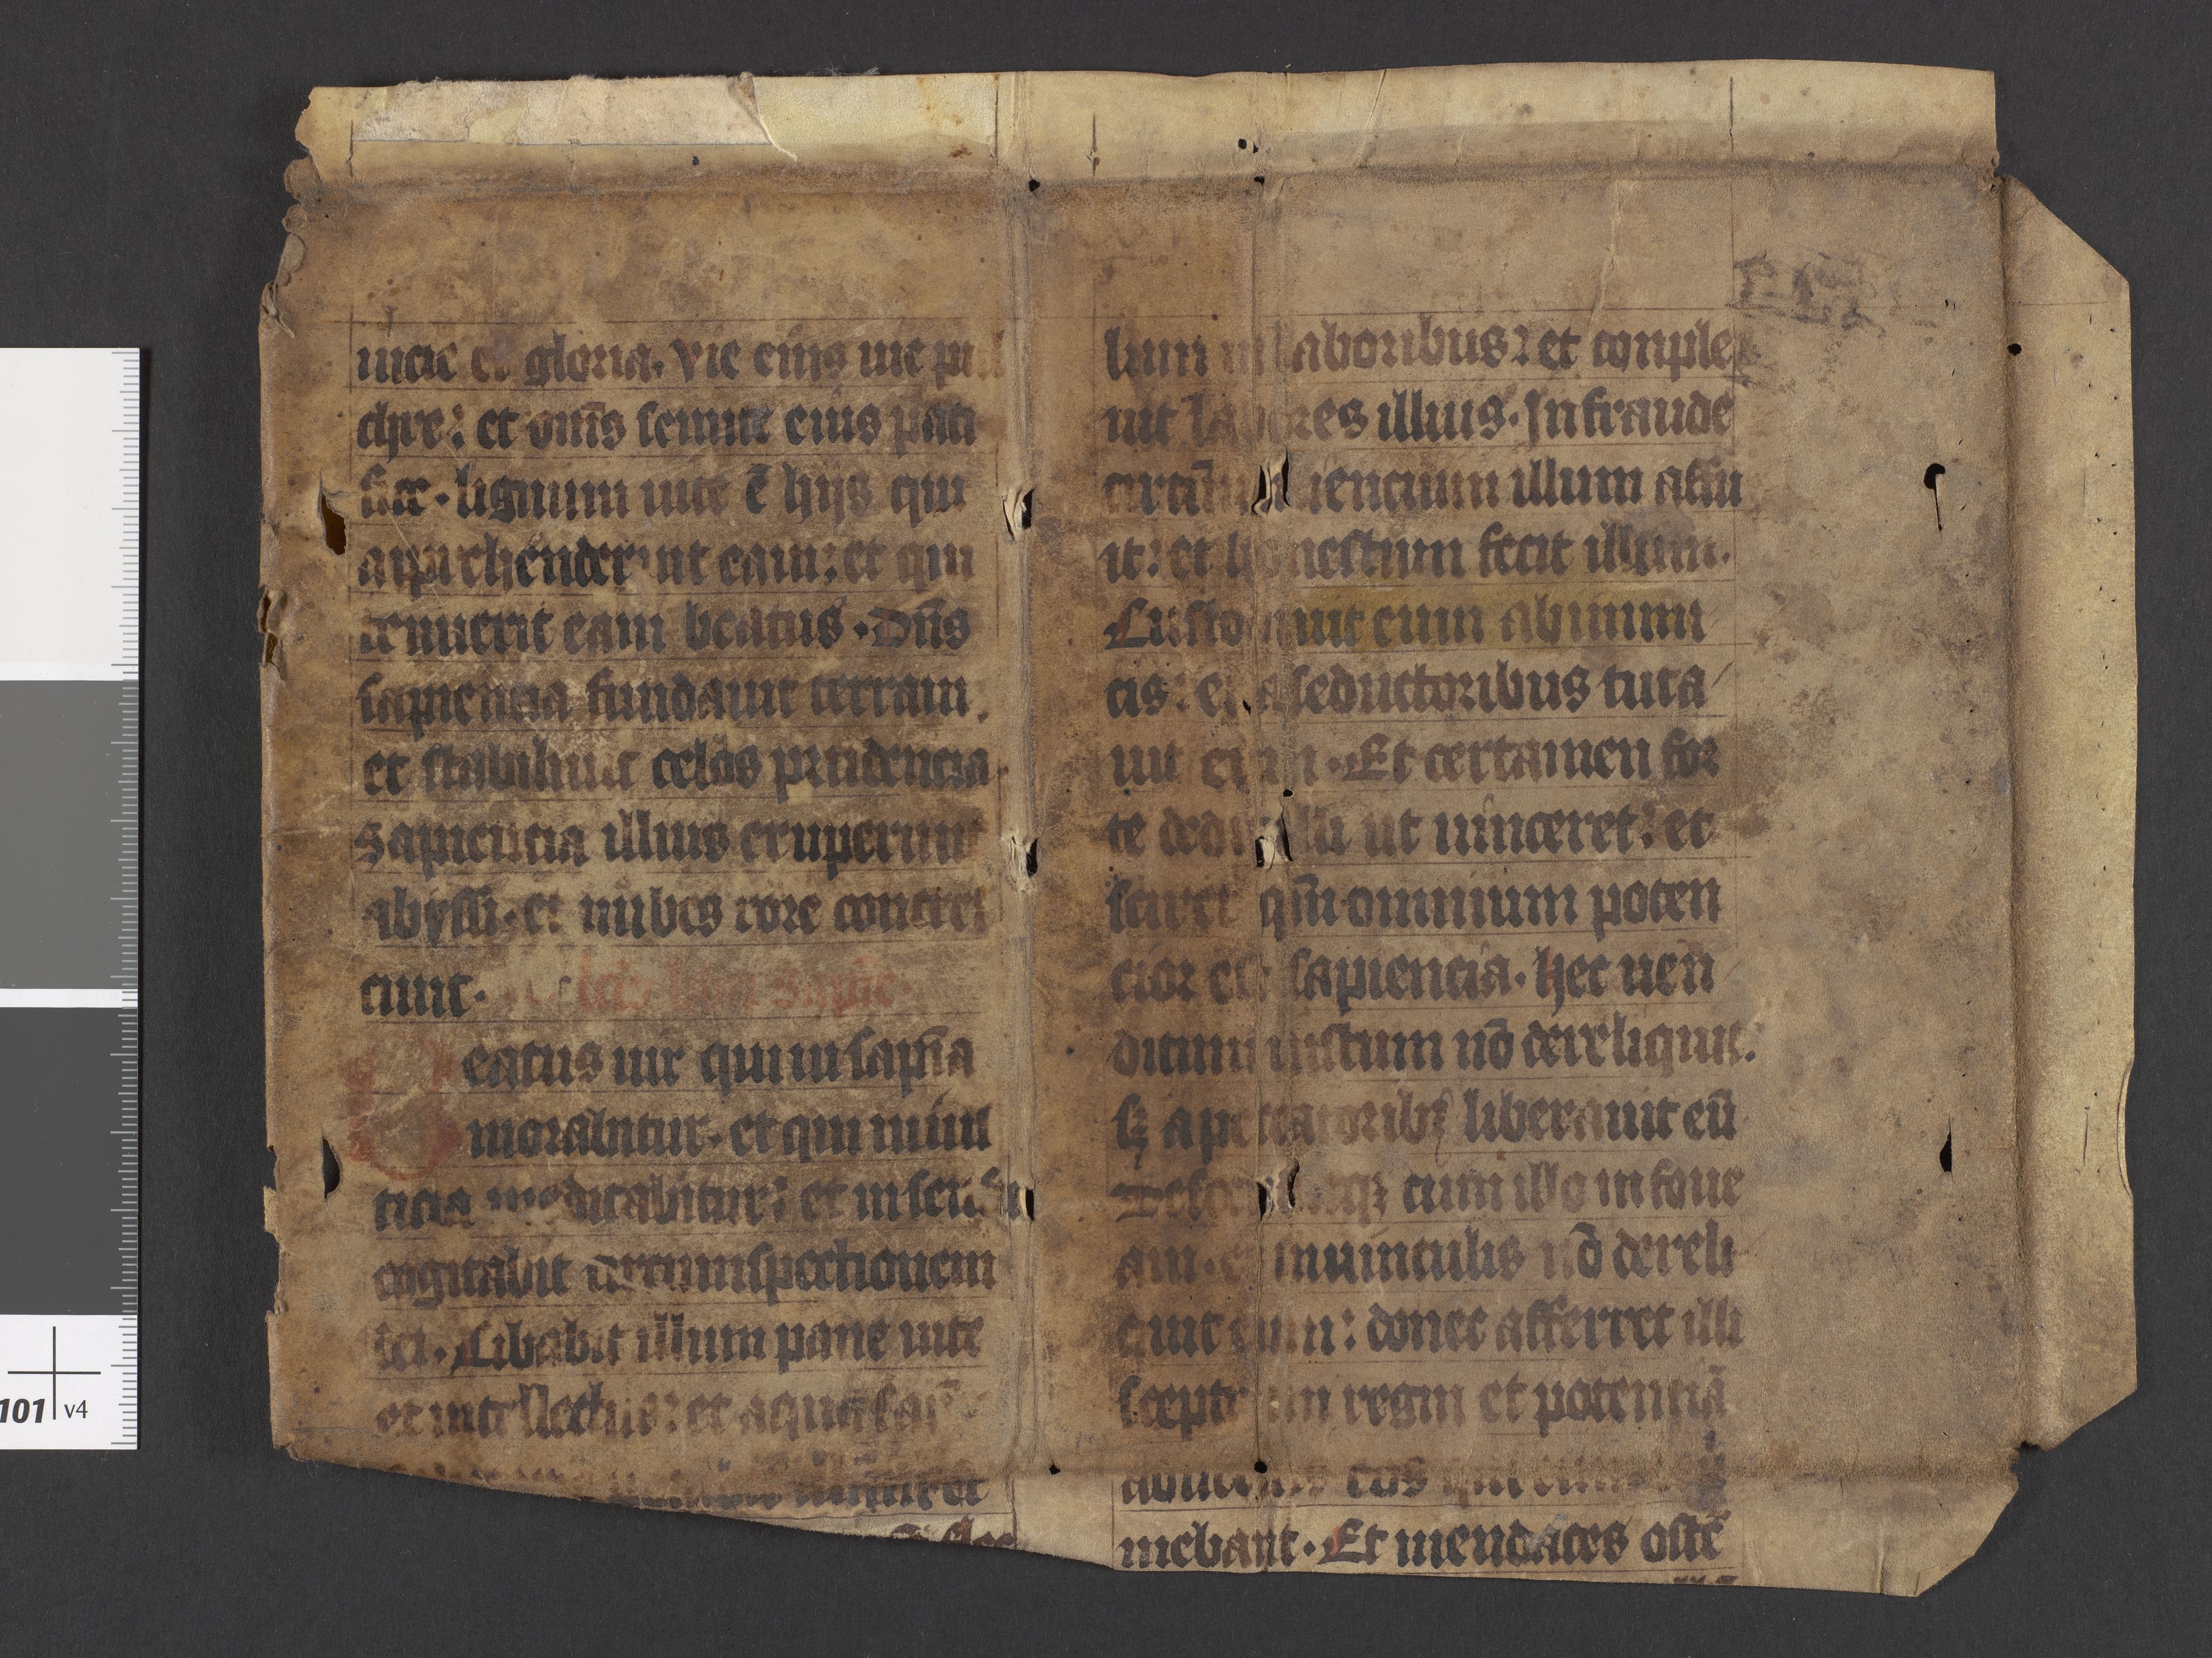 uicie et gloria. vie eius uie pul
chre: et om̄s semite eius paci
fice. lignum uite ē hijs qui
apprehenderunt eam: et qui
tenuerit eam beatus. Dn̄s
sapiencia fundauit terram.
et stabiliuit celos prudencia.
Sapiencia illius eruperunt
abyssi. et nubes rore concres
cunt.
Beatus uir qui in sapīa
morabitur. et qui in iusti
ticia meditabitur: et in sensu
cogitabit circumspectionem
dei. Cibabit illum pane uite
et intellectus: et aqua sap
lum in laboribus: et conple
uit labores illius. In fraude
circūueniencium illum affu
it: et honestum fecit illum.
Custodiuit eum ab inimi
cis: et a seductoribus tuta
uit eum. Et certamen for
te dedit illi ut uinceret: et
sciret qm̄ omnium poten
cior est sapiencia. hec uen
ditum iustum nō dereliquit.
sꝫ a peccatoribꝫ liberauit eū
Descenditqꝫ cum illo in foue
am. et in uinculis nō dereli
quit eum: donec afferret illi
sceptrum regni et potenciā
aduersus eos qui eum
mebant. Et mendaces ostē